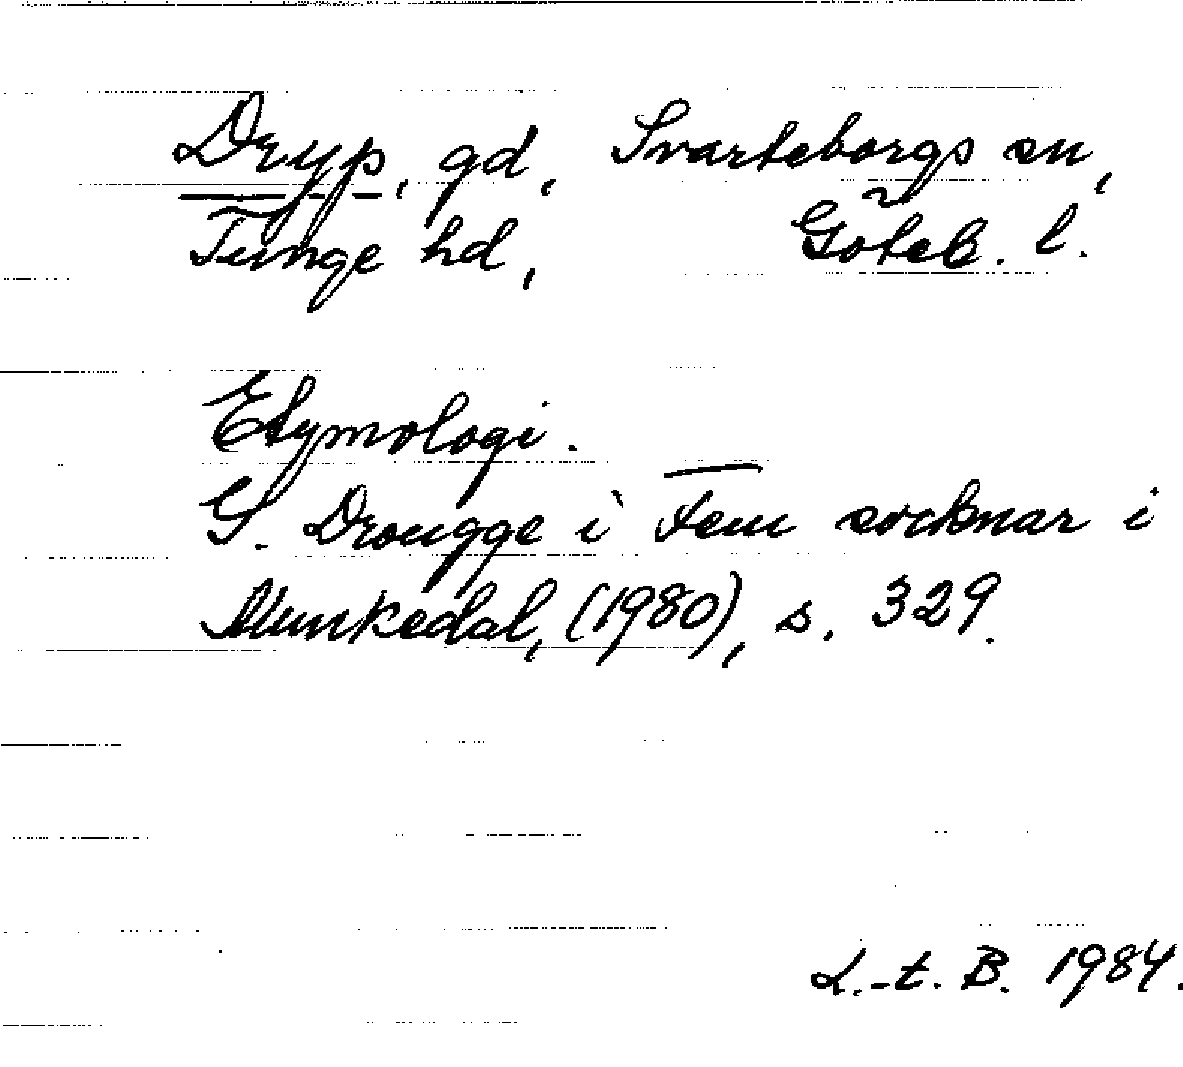 Dryp, gd, Svarteborgs sn,
Tunge hd, Göteb. l.
Etymologi.
G. Drougge i Fem socknar i
Munkedal, (1980), s. 329.
L.-t. B. 1984.